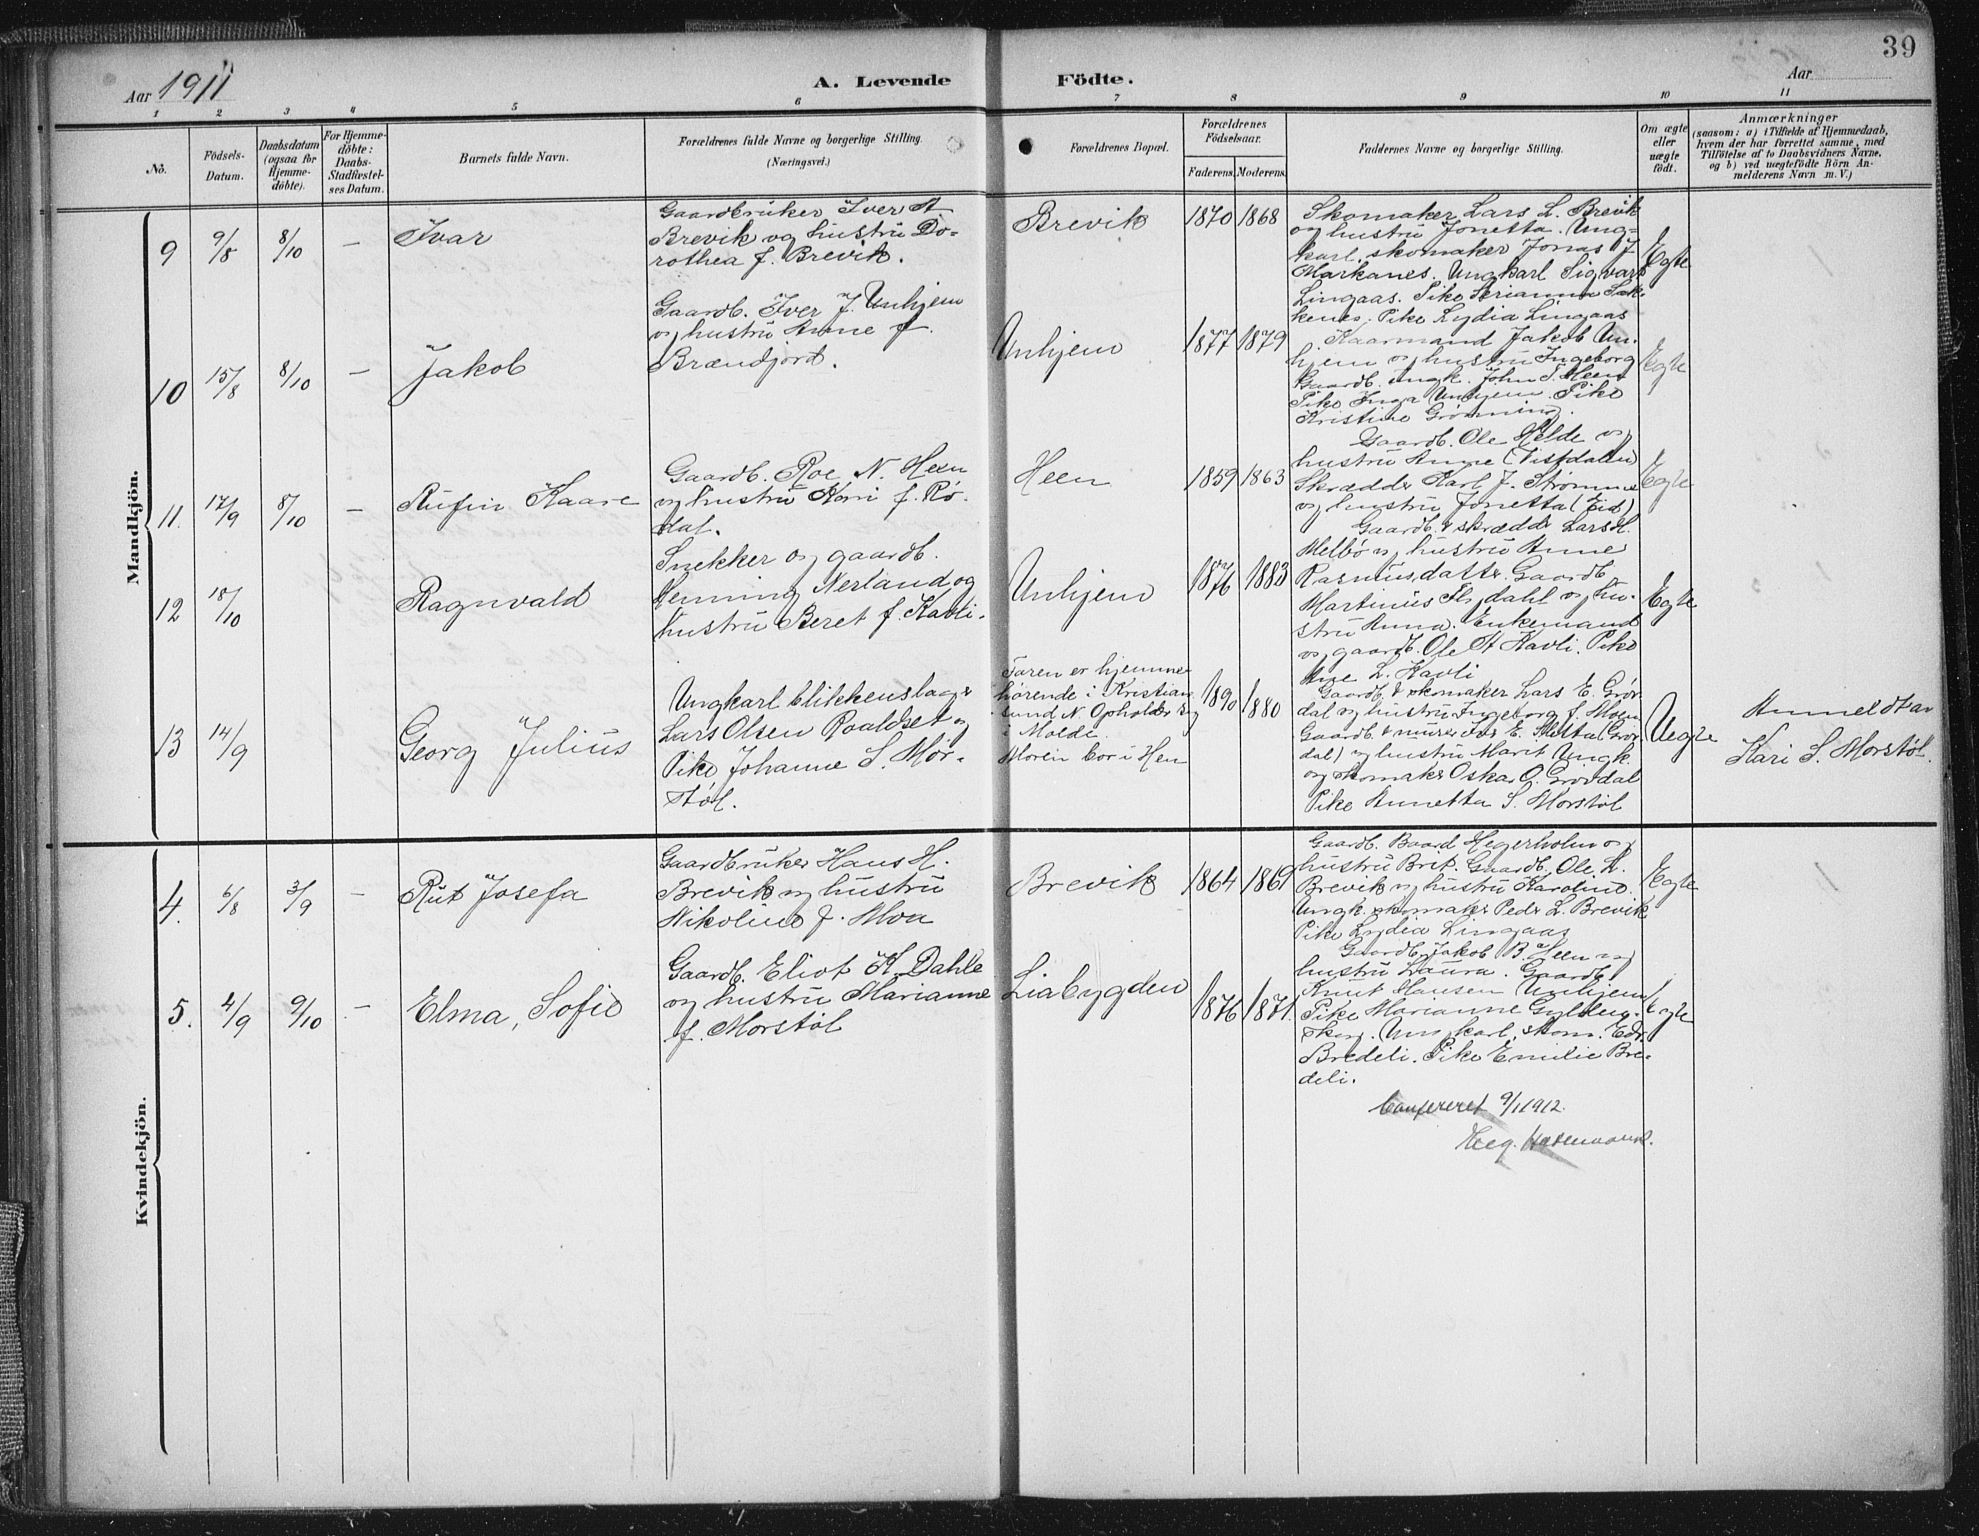 39
Aar 1911
A. Levende Födte.
Aar
1 2 3 4 5 6 7 8 9 10 11
No.
Födsels-Datum.
Daabsdatum (ogsaa för Hjemmedöbte).
For Hjemmedöbte: Daabs-Stadfæstelses Datum.
Barnets fulde Navn.
Forældrenes fulde Navne og borgerlige Stilling.
(Næringsvei.)
Forældrenes Bopæl.
Forældrenes Födselsaar.
Faderens. Moderens.
Faddernes Navne og borgerlige Stilling.
Om ægte eller uægte födt.
Anmærkninger
(saasom: a) i Tilfælde af Hjemmedaab,
hvem der har forrettet samme, med
Tilföielse af to Daabsvidners Navne,
og b) ved uægtefödte Börn An-
melderens Navn m. V.)
Mandkjön.
9 9/8 8/10 — Ivar
Gaardbruker Iver A
Brevik og hustru Do-
rothea f. Brevik.
Brevik 1870 1868
Skomaker Lars L. Brevik
og hustru Jonetta. Ung-
karl, skomaker Jonas J.
Markanes. Ungkarl Sigvart
Lingaas. Pike Serianna
Pike Lydia Lingaas
Egte
10 15/8 8/10 — Jakob
Gaardb. Iver J. Unhjem
og hustru Anne f.
Brændjord.
Unhjem 1877 1879
Kaarmand Jakob Un-
hjem og hustru Ingeborg
Gaardb. ungk. John T. Heen
Pike Inga Unhjem. Pike
Kristine Grønning.
Egte
11. 17/9 8/10 — Rufin Kaare
Gaardb. Roe N. Heen
og hustru Kari f. Rø-
dal.
Heen 1859 1863
Gaardb. Ole Helde og
hustru Anne (Vistdalen)
Skrædder Karl J. Strømme
og hustru Jonetta (Eid)
Egte
12 18/10 Ragnvald
Snekker og gaardb.
Henning Nerland og
hustru Beret f. Kavli.
Unhjem 1876 1883
Gaardb. & skrædder Lars H.
Melbø og hustru Anne
Rasmusdatter. Gaardb.
Martinus Flydahl og hu-
stru Anna. Enkemand
og gaardb. Ole A Kavli. Pike
Ane L. Kavli
Egte
13 14/9 Georg Julius
Ungkarl blikkenslager
Lars Olsen Roaldset og
Pike Johanne S. Mor-
støl.
Faren er hjemme-
hørende i Kristian-
sund N. Opholder sig
i Molde.
Moren bor i Hen
1890 1880
Gaardb. & skomaker Lars E. Grøv-
dal og hustru Ingeborg f. Moen
Gaardb. & murer Iver E. (Grøv-
dal) og hustru Marit Ungk.
og skomaker Oskar O. Grøvdal
Pike Annetta S. Morstøl
Uegte
Anmeldt av
Kari S. Morstøl.
Kvindekjön.
4. 6/8 3/9 — Rut Josefa
Gaardbruker Hans H.
Brevik og hustru
Nikoline f. Moa
Brevik 1864 1869
Gaardb. Baard Hegerholm og
hustru Brit. Gaardb. Ole L.
Brevik og hustru Karoline.
Ungk. skomaker Peder L. Brevik
Pike Lydia Lingaas
Egte
5. 4/9 9/10 — Elma, Sofie
Gaardb. Eliot K. Dahle
og hustru Marianne
f. Morstøl
Liabygden 1876 1871.
Gaardb. Jakob B. Heen og
hustru Laura. Gaardb.
Knut Hansen Unhjem
Pike Marianne Gylden-
skog. Ungkarl, skom. Edv.
Bredeli. Pike Emilie Bre-
deli.
Egte
Confereret 9/1 1912.